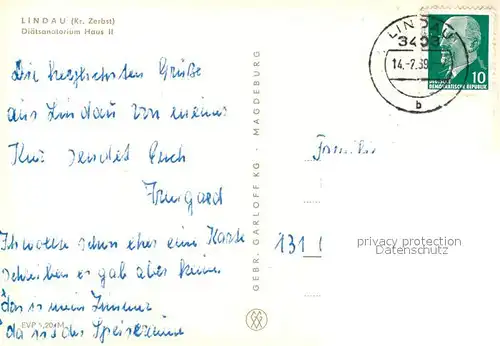 LINDAU (Kr. Zerbst)
Diätsanatorium Haus II
Die herzlichsten Grüße
aus Lindau von meiner
Kur sendet Euch
Irmgard
Ich wollte schon eher eine Karte
schreiben es gab aber keine
das is mein Zimmer
da is der Speiseraum
EVP 0,20 M
GEBR. GARLOFF KG · MAGDEBURG
LINDAU
3403
14.-7.69
b
10
DEUTSCHE
DEMOKRATISCHE REPUBLIK
Familie
131
privacy protection
Datenschutz